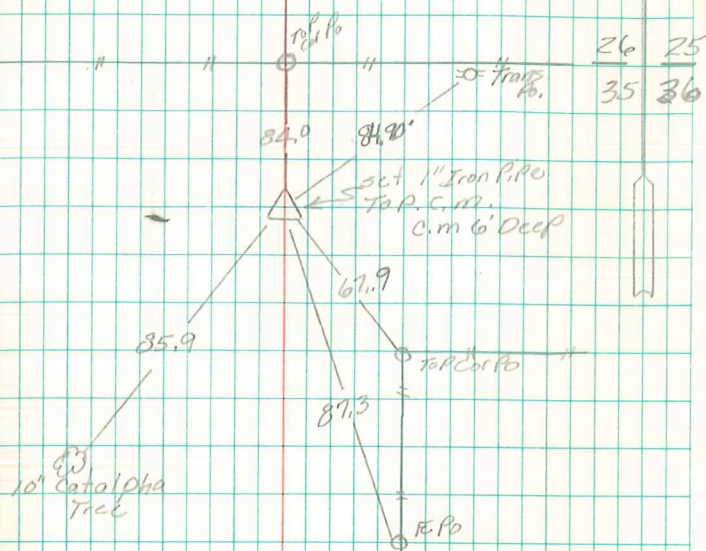 Top
Cor Po
26 25
35 36
Trans
Po.
84.0
84.90'
set 1" Iron Pipe
Top. C.M.
C.M 6' Deep
67.9
85.9
Top Cor Po
87.3
10" Catalpha
Tree
FE Po